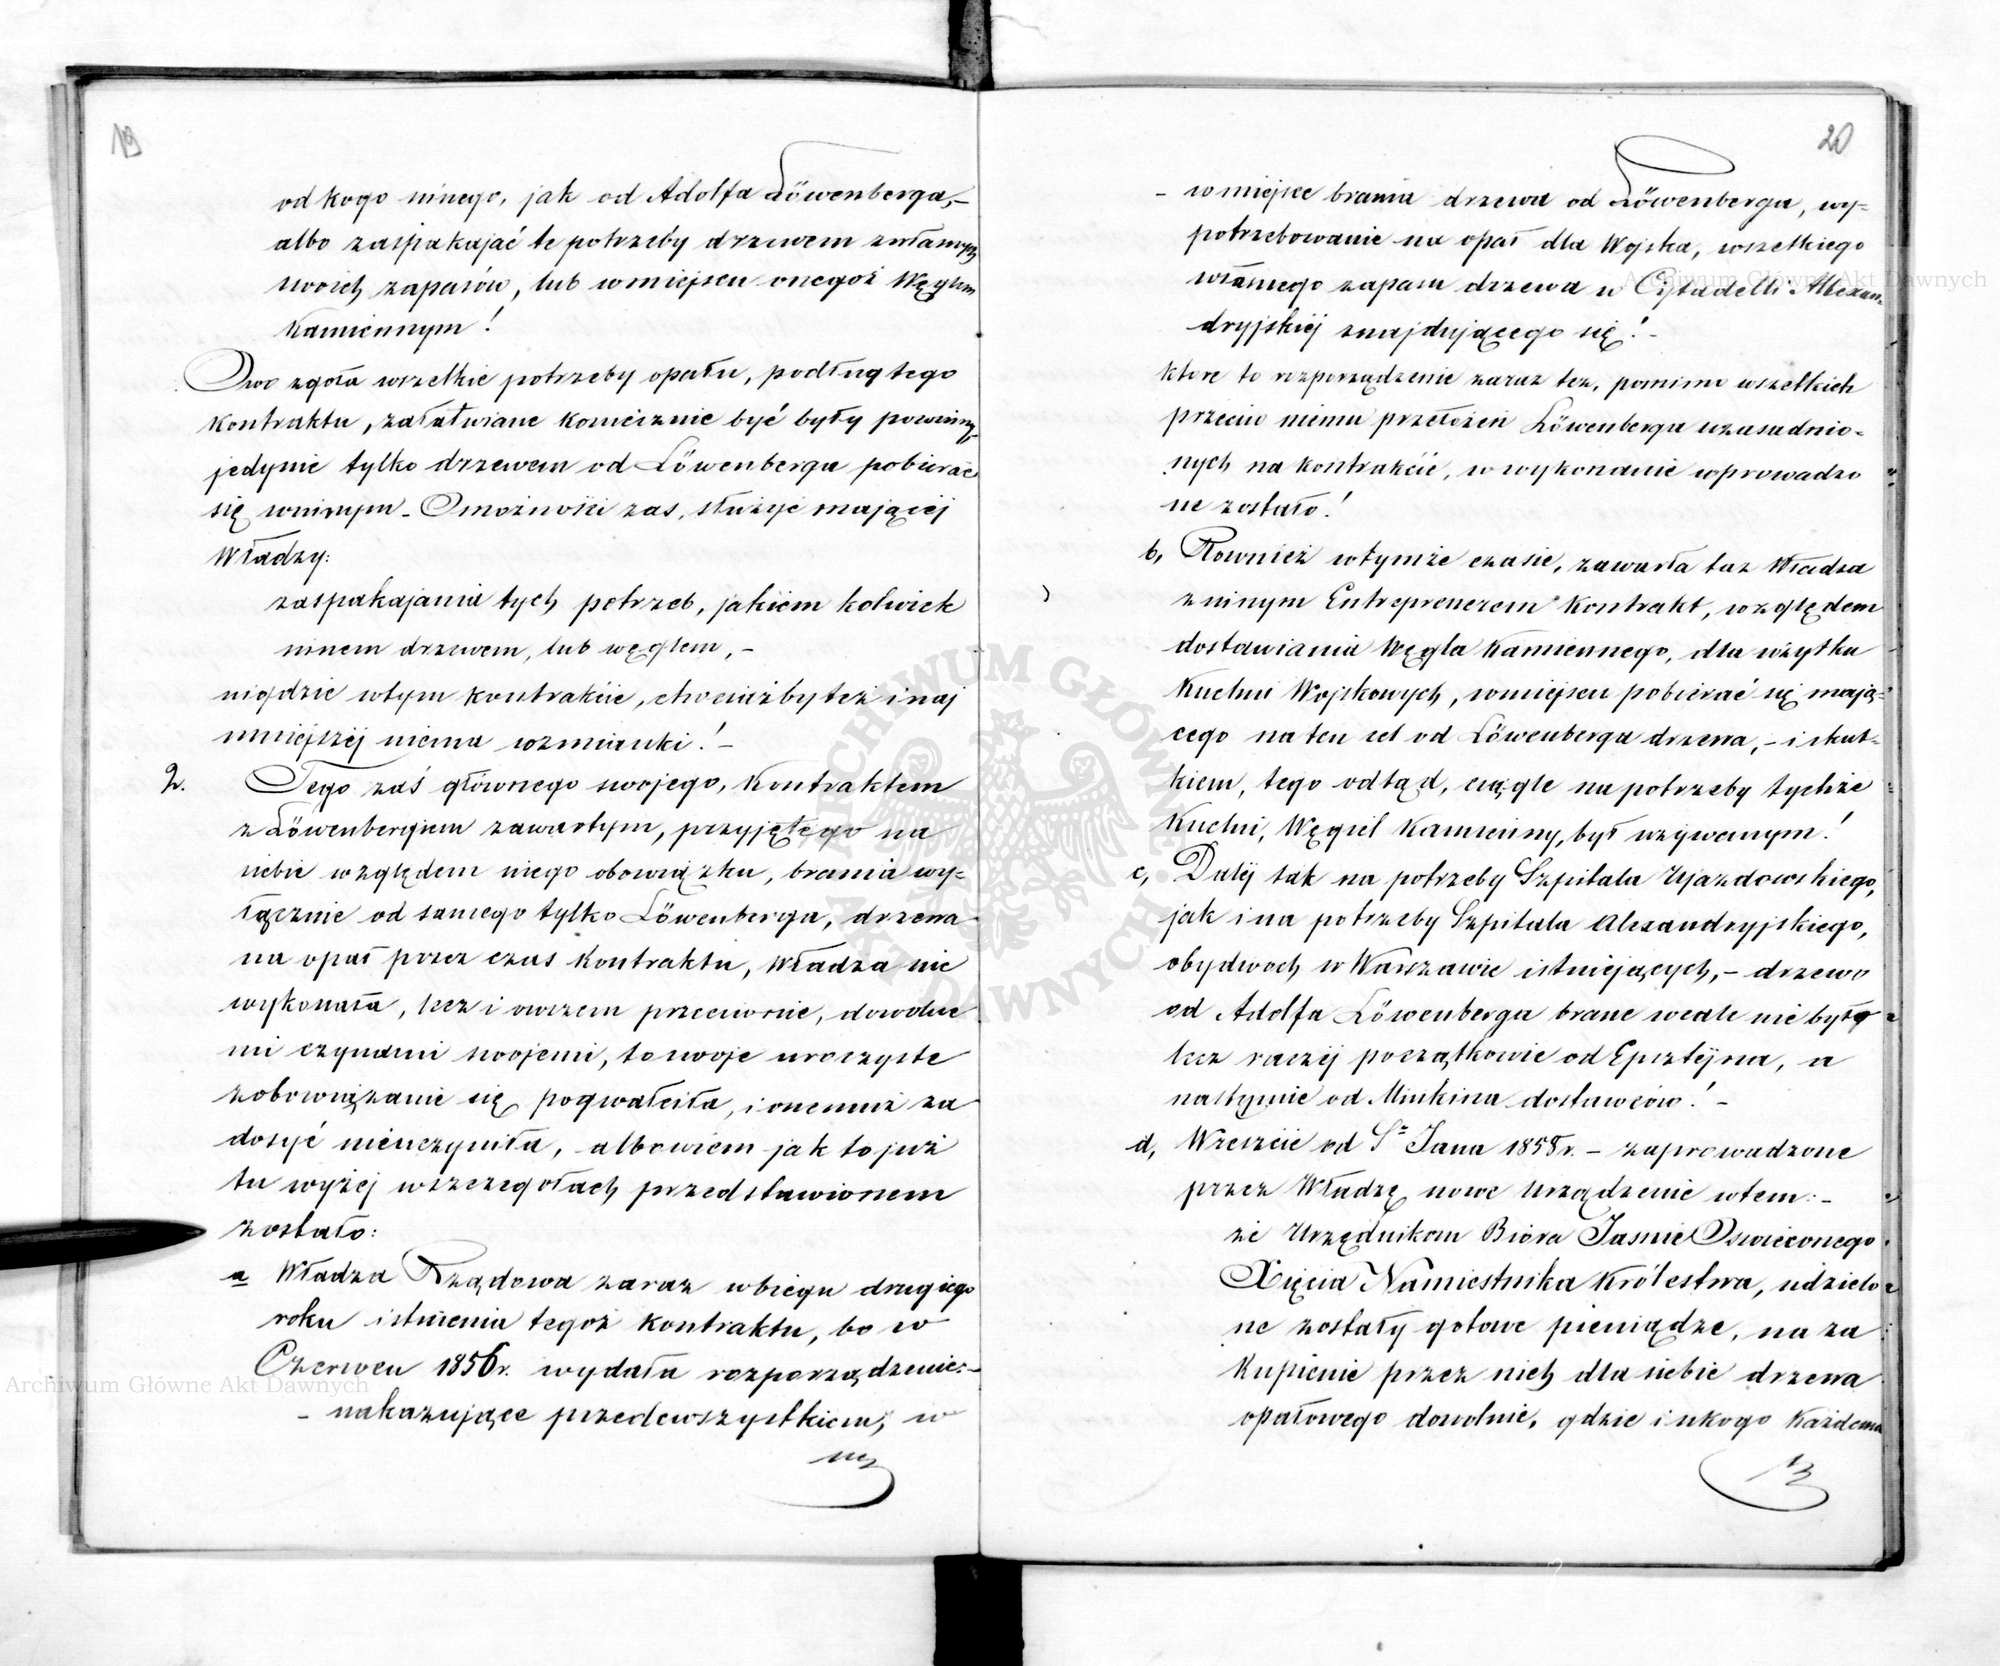 19
od kogo innego, jak od Adolfa Löwenberga,–
albo zaspakajać te potrzeby drzewem z własnych
swoich zapasów, lub w miejscu onegoż Węglem
Kamiennym!
Owo zgoła wszelkie potrzeby opału, podług tego
Kontraktu, załatwiane koniecznie być były powinny,
jedynie tylko drzewem od Löwenberga pobierać
się winnym – O możności zas, służyć mającej
Władzy:
zaspakajania tych potrzeb, jakiem kolwiek
innem drzewem, lub węglem, –
nigdzie w tym kontrakcie, chociażby też i naj
mniejszéj niema wzmianki! –
2. Tego zaś głównego swojego, Kontraktem
z Löwenbergiem zawartym, przyjętego na
siebie względem niego obowiązku, brania wy-
łącznie od samego tylko Löwenberga, drzewa
na opał przez czas Kontraktu, Władza nie
wykonała, lecz i owszem przeciwnie, dowolne
mi czynami swojemi, to swoje uroczyste
zobowiązanie się pogwałciła, i onemuż za
dosyć nieuczyniła, albowiem jak to już
tu wyżej w szczegółach przedstawionem
zostało:
a Władza Rządowa zaraz w biegu drugiego
roku istnienia tegoż Kontraktu, bo w
Czerwcu 1856 r. wydała rozporządzenie:–
– nakazujące przedewszystkiem, w
20
– w miejsce brania drzewa od Löwenberga, wy-
potrzebowanie na opał dla Wojska, wszelkiego
własnego zapasu drzewa w Cytadelli Alexan-
dryjskiéj znajdującego się! –
które to rozporządzenie zaraz też, pomimo wszelkich
przeciw niemu przełożeń Löwenberga uzasadnio-
nych na Kontrakcie, w wykonanie wprowadzo
ne zostało!
b, Rownież w tymże czasie, zawarła taż Władza
z innym Entreprenerem Kontrakt, względem
dostawiania Węgla Kamiennego, dla użytku
Kuchni Wojskowych, w miejscu pobierać się mają-
cego na ten cel od Löwenberga drzewa, – i skut-
kiem, tego odtąd, ciągle na potrzeby tychże
Kuchni, Węgiel Kamienny, był używanym!
c, Daléj tak na potrzeby Szpitala Ujazdowskiego,
jak i na potrzeby Szpitala Alexandryjskiego,
obydwoch w Warszawie istniejących, – drzewo
od Adolfa Löwenberga brane wcale nie było
lecz raczéj początkowie od Epsztéjna, a
nastympnie od Minkina dostawców! –
d, Wreszcie od Sgo Jana 1858 r. – zaprowadzone
przez Władzę nowe Urządzenie w tem: –
że Urzędnikom Biora Jasnie Oswieconego
Xięcia Namiestnika Królestwa, udzielo
ne zostały gotowe pieniądze, na za
Kupienie przez nich dla siebie drzewa
opałowego dowolnie, gdzie i u kogo Każdemu
Archiwum Główne Akt Dawnych
Archiwum Główne Akt Dawnych
ARCHIWUM GŁÓWNE AKT DAWNYCH